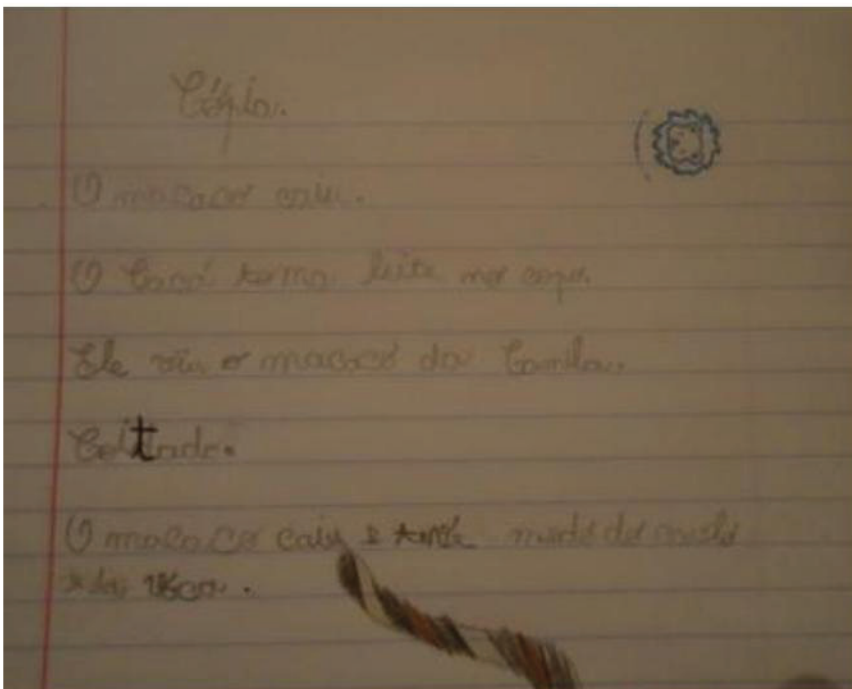 Cópia.
O macaco caiu.
O Cacá toma leite no copo.
Ele viu o macaco da Camila.
Coitado.
O macaco caiu e teve medo do
da vaca.